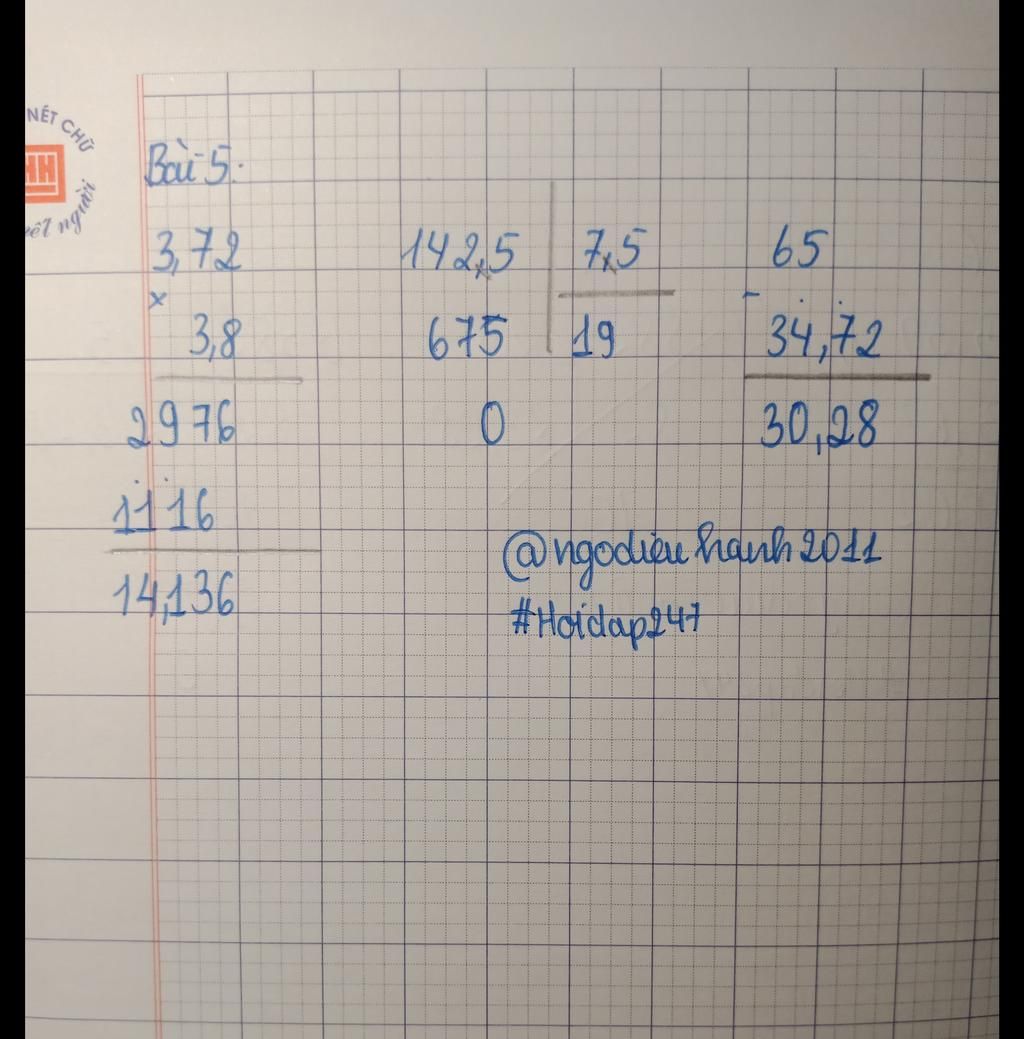 NÉT CHỮ
HH
nết người
Bài 5:
3,72
×
3,8
2976
1116
14,136
142,5 7,5
675 19
0
65
-
34,72
30,28
@ngodieuhanh2011
#Hoidap247